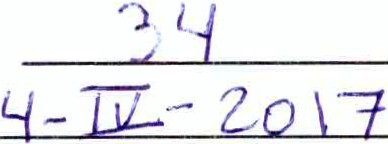 34
4-IV-2017